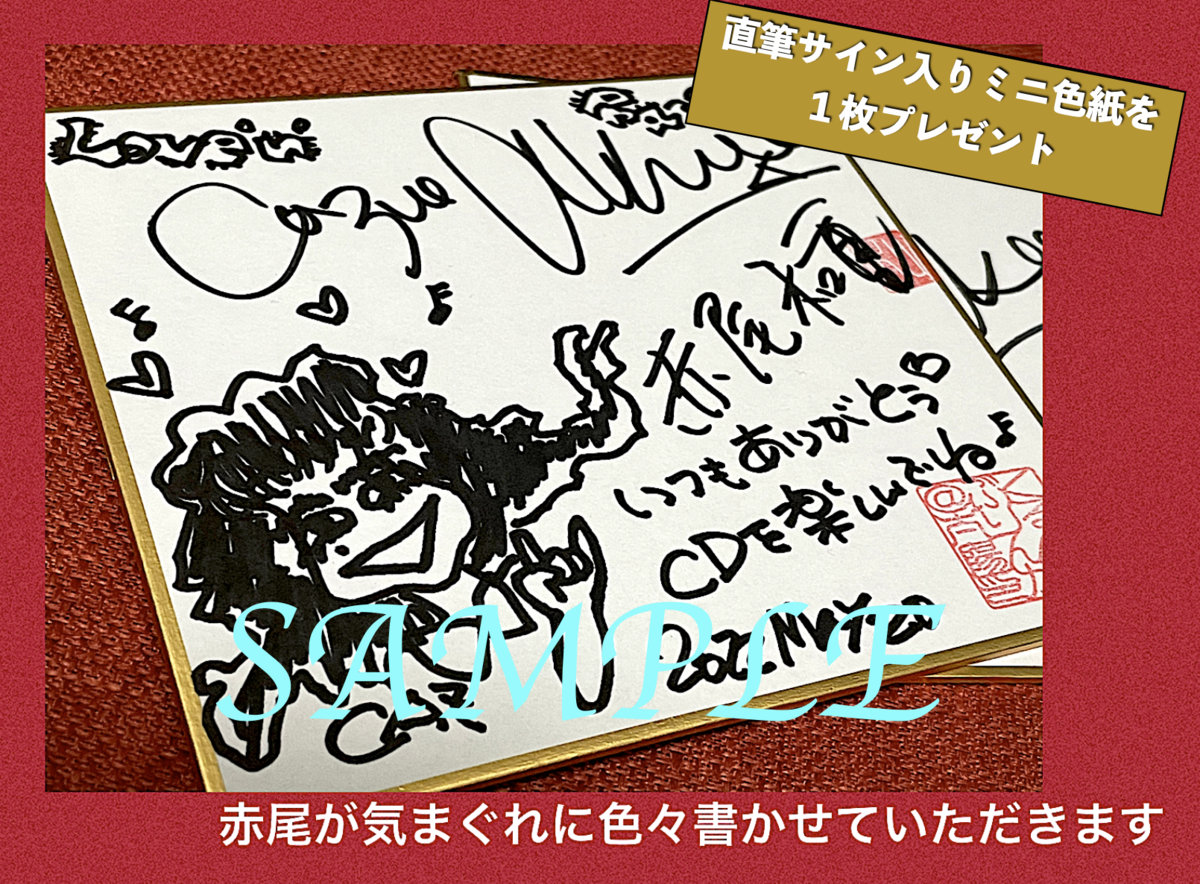 直筆サイン入りミニ色紙を
１枚プレゼント
赤尾和重
いつもありがとう
CDを楽しんでね♪
SAMPLE
赤尾が気まぐれに色々書かせていただきます